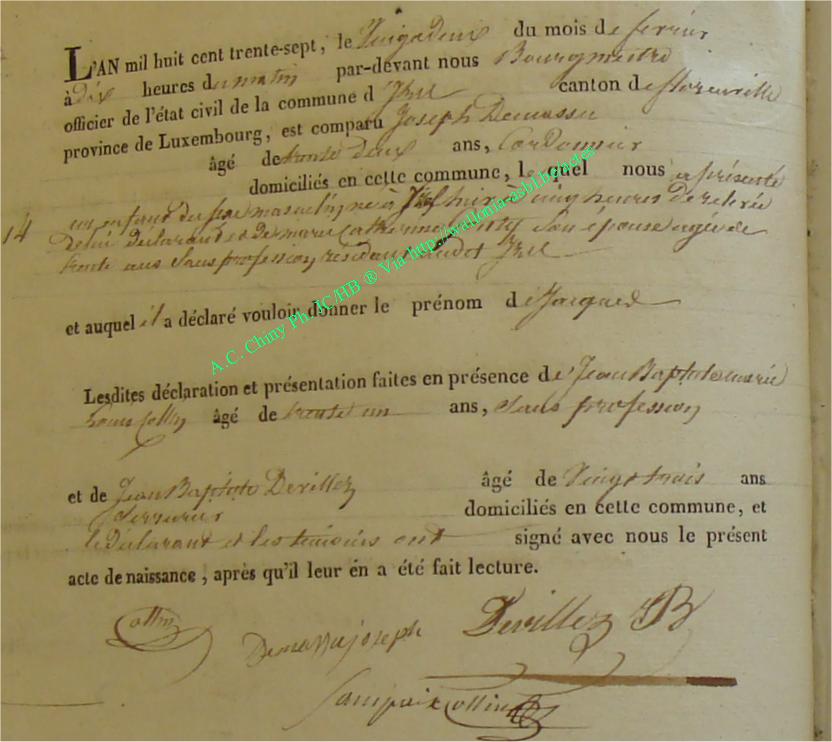 L'AN mil huit cent trente-sept, le Vingtdeux du mois de fevrier
à dix heures du matin par-devant nous Bourgmestre
officier de l'état civil de la commune d'Izel canton de florenville
province de Luxembourg, est comparu Joseph Demasse
âgé de trente deux ans, Cordonnier
domiciliés en cette commune, lequel nous a présenté
14 un enfant du sexe masculin né à Izel hier à cinq heures de relevée
De lui Déclarant et De marie catherine Son épouse agée de
trente ans Sans profession residant audit Izel
et auquel il a déclaré vouloir donner le prénom de Jacques
Lesdites déclaration et présentation faites en présence de Jean Baptiste marie
Louis Collin âgé de trente un ans, Sans profession
et de Jean Baptiste Devillez âgé de Vingt trois ans
Serrurier domiciliés en cette commune, et
le Déclarant et les temoins ont signé avec nous le présent
acte de naissance, après qu'il leur en a été fait lecture.
Collin
Demasse joseph Devillez JB
Sampaix Collin
A.C. Chiny Ph. JC/HB ® Via http://wallonia-asbl.be/actes